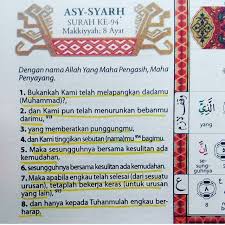 ASY-SYARH
SURAH KE-94
Makkiyyah; 8 Ayat
Dengan nama Allah Yang Maha Pengasih, Maha
Penyayang.
1. Bukankah Kami telah melapangkan dadamu
(Muhammad)?,
2. dan Kami pun telah menurunkan bebanmu
darimu,
3. yang memberatkan punggungmu,
4. dan Kami tinggikan sebutan (nama)mu bagimu.
5. Maka sesungguhnya bersama kesulitan ada
kemudahan,
6. sesungguhnya bersama kesulitan ada kemudahan.
7. Maka apabila engkau telah selesai (dari sesuatu
urusan), tetaplah bekerja keras (untuk urusan
yang lain),
8. dan hanya kepada Tuhanmulah engkau ber-
harap.
yang
se-
sung-
guhnya